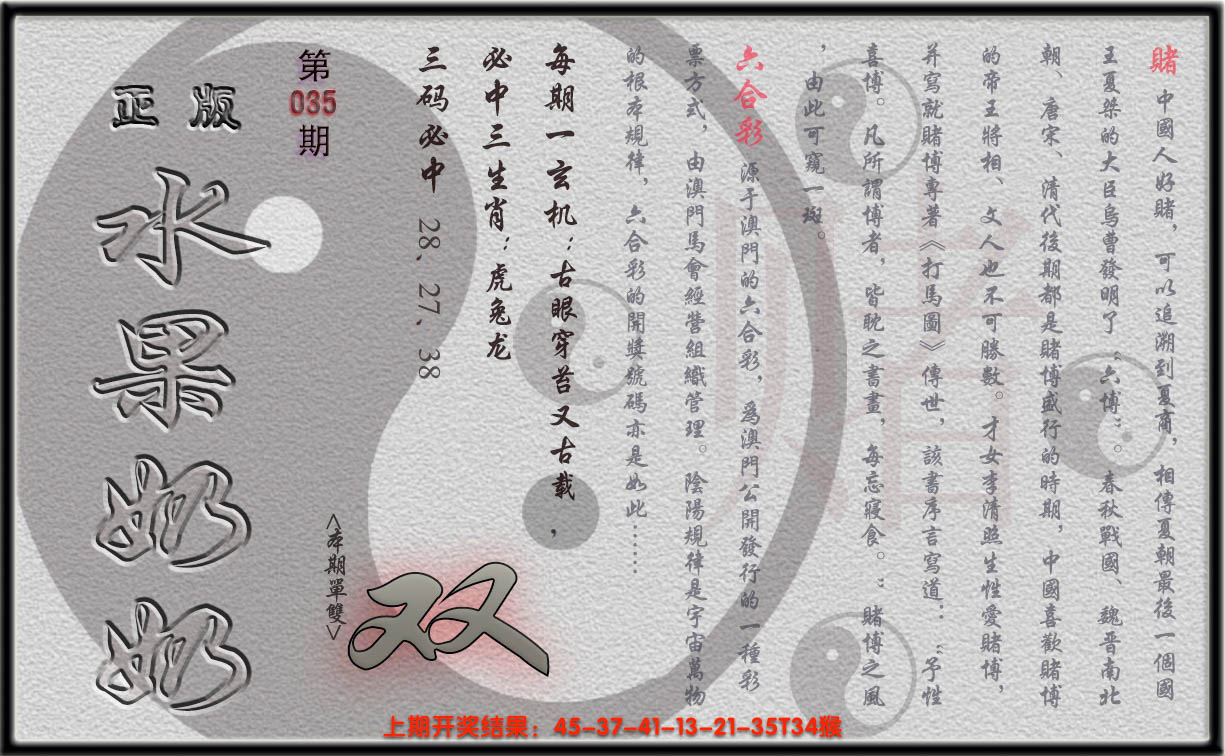 賭 中國人好賭，可以追溯到夏商，相傳夏朝最後一個國
王夏桀的大臣烏曹發明了“六博”。春秋戰國、魏晋南北
朝、唐宋、清代後期都是賭博盛行的時期，中國喜歡賭博
的帝王將相、文人也不可勝數。才女李清照生性愛賭博，
并寫就賭博專著《打馬圖》傳世，該書序言寫道：“予性
喜博。凡所謂博者，皆耽之書晝，每忘寢食。”賭博之風
，由此可窺一斑。
六合彩 源于澳門的六合彩，爲澳門公開發行的一種彩
票方式，由澳門馬會經營組織管理。陰陽規律是宇宙萬物
的根本規律，六合彩的開獎號碼亦是如此……
每期一玄机：古眼穿苔又古载，
必中三生肖：虎兔龙
三码必中 28、27、38
第
035
期
<本期單雙>
双
正版
水果奶奶
赌
上期开奖结果：45-37-41-13-21-35T34猴